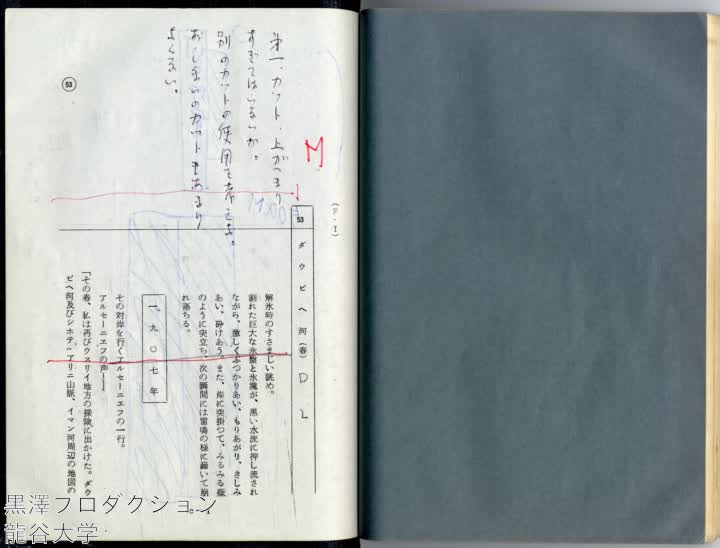 第一、カット・上がつまり
すぎてはいないか。
別のカットの使用を考える。
おしまいのカットもあまり
よくない。
M
(F・I)
53
ダウビヘ河(春)
D
L
解氷時のすさまじい眺め。
割れた巨大な氷盤と氷塊が、黒い水流に押し流され
ながら、激しくぶつかりあい、もりあがり、きしみ
あい、砕けあう。また、岸に突掛つて、みるみる
のように突立ち、次の瞬間には雷鳴の様に轟いて崩
れ落ちる。
一九〇七年
その対岸を行くアルセーニエフの一行。
アルセーニエフの声――
「その春、私は再びウスリイ地方の探険に出かけた。ダウ
ビヘ河及びシホテ・アリニ山脈、イマン河周辺の地図の
53
黒澤プロダクション
龍谷大学